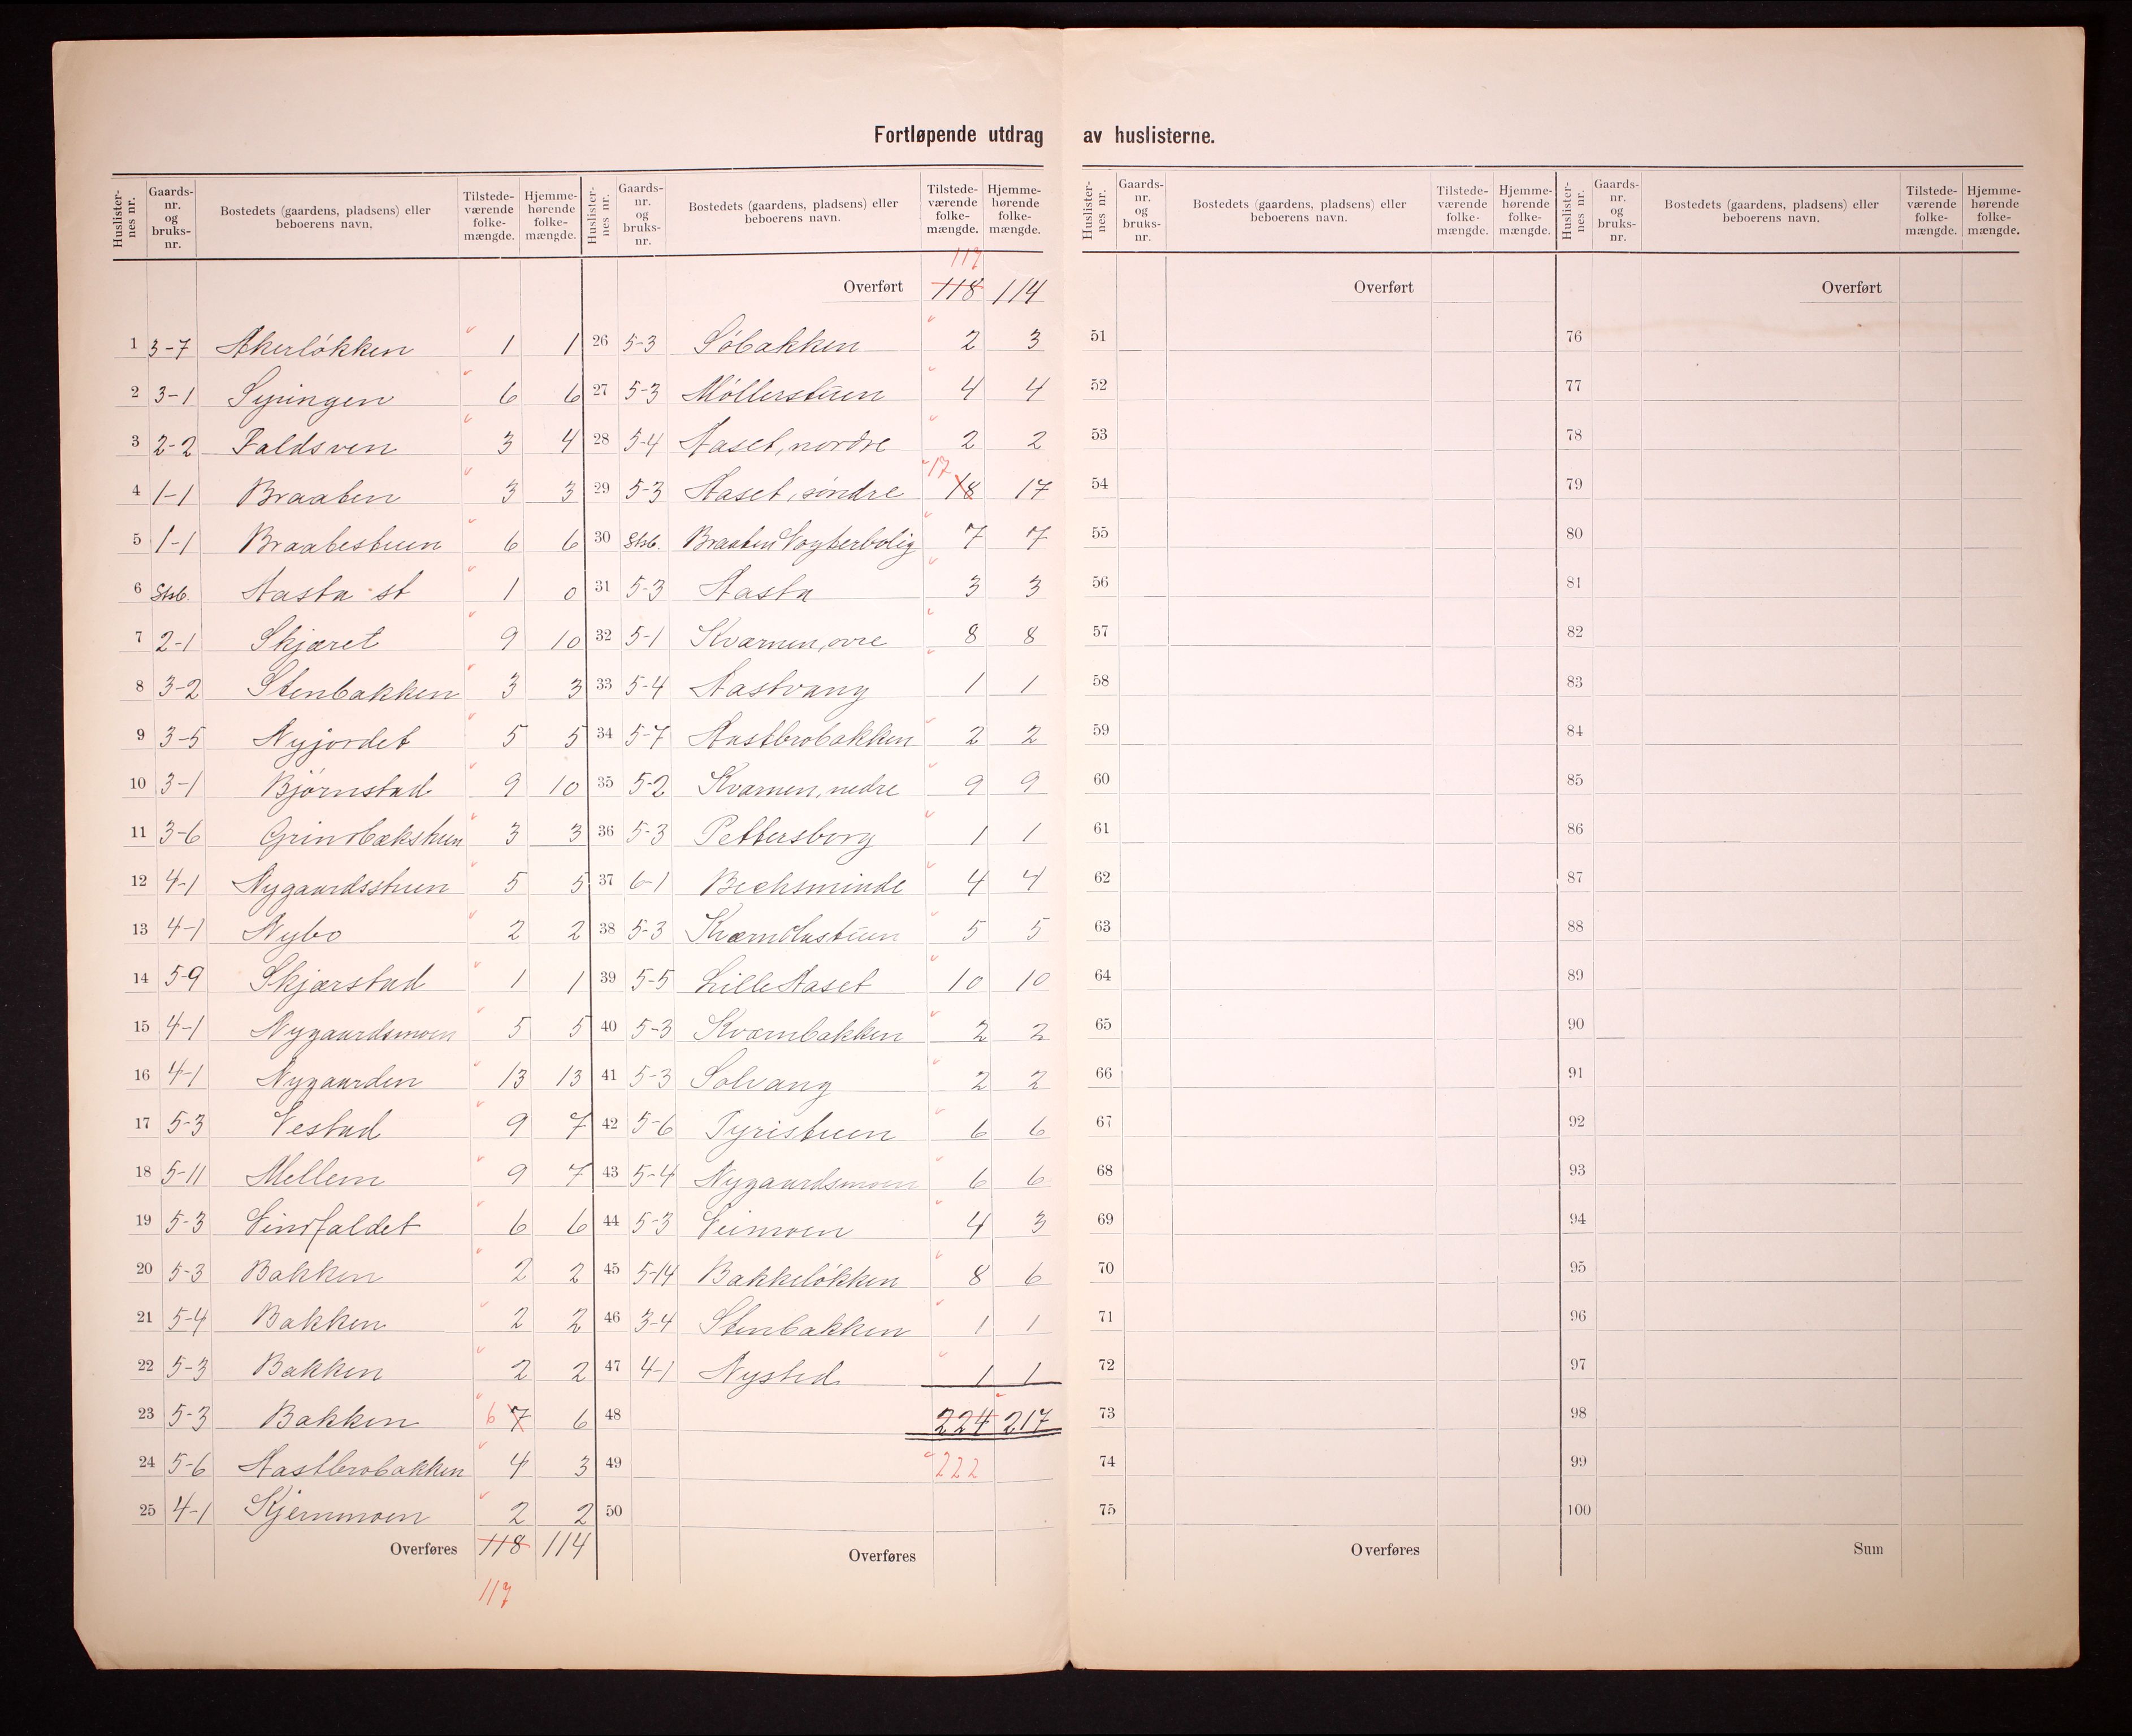 Fortløpende utdrag av huslisterne.
Huslisternes nr. Gaards-nr. og bruks-nr. Bostedets (gaardens, pladsens) eller beboerens navn. Tilstede-værende folke-mængde. Hjemme-hørende folke-mængde.
1 3-7 Akerløkken 1 1
2 3-1 Syningen 6 6
3 2-2 Faldsven 3 4
4 1-1 Braaten 3 3
5 1-1 Braatestuen 6 6
6 Stsb. Aasta st 1 0
7 2-1 Skjæret 9 10
8 3-2 Stenbakken 3 3
9 3-5 Nyjordet 5 5
10 3-1 Bjørnstad 9 10
11 3-6 Grindbækstuen 3 3
12 4-1 Nygaardsstuen 5 5
13 4-1 Nybo 2 2
14 5-9 Skjærstad 1 1
15 4-1 Nygaardsmoen 5 5
16 4-1 Nygaarden 13 13
17 5-3 Vestad 9 7
18 5-11 Mellem 9 7
19 5-3 Vindfaldet 6 6
20 5-3 Bakken 2 2
21 5-4 Bakken 2 2
22 5-3 Bakken 2 2
23 5-3 Bakken 6 7 6
24 5-6 Aastbrobakken 4 3
25 4-1 Kjernmoen 2 2
Overføres 118 114
117
Huslisternes nr. Gaards-nr. og bruks-nr. Bostedets (gaardens, pladsens) eller beboerens navn. Tilstede-værende folke-mængde. Hjemme-hørende folke-mængde.
117
Overført 118 114
26 5-3 Søbakken 2 3
27 5-3 Møllerstuen 4 4
28 5-4 Aaset, nordre 2 2
29 5-3 Aaset, søndre 17 18 17
30 Stsb. Braaten Vogterbolig 7 7
31 5-3 Aasta 3 3
32 5-1 Kværnen, øvre 8 8
33 5-4 Aastvang 1 1
34 5-7 Aastbrobakken 2 2
35 5-2 Kværnen, nedre 9 9
36 5-3 Pettersborg 1 1
37 6-1 Bechsminde 4 4
38 5-3 5 5
39 5-5 Lille Aaset 10 10
40 5-3 Kværnbakken 2 2
41 5-3 Solvang 2 2
42 5-6 Tyristuen 6 6
43 5-4 Nygaardsmoen 6 6
44 5-3 Veimoen 4 3
45 5-14 Bakkeløkken 8 6
46 3-4 Stenbakken 1 1
47 4-1 Nysted 1 1
48 224 217
49 222
50
Overføres
Huslisternes nr. Gaards-nr. og bruks-nr. Bostedets (gaardens, pladsens) eller beboerens navn. Tilstede-værende folke-mængde. Hjemme-hørende folke-mængde.
Overført
51
52
53
54
55
56
57
58
59
60
61
62
63
64
65
66
67
68
69
70
71
72
73
74
75
Overføres
Huslisternes nr. Gaards-nr. og bruks-nr. Bostedets (gaardens, pladsens) eller beboerens navn. Tilstede-værende folke-mængde. Hjemme-hørende folke-mængde.
Overført
76
77
78
79
80
81
82
83
84
85
86
87
88
89
90
91
92
93
94
95
96
97
98
99
100
Sum